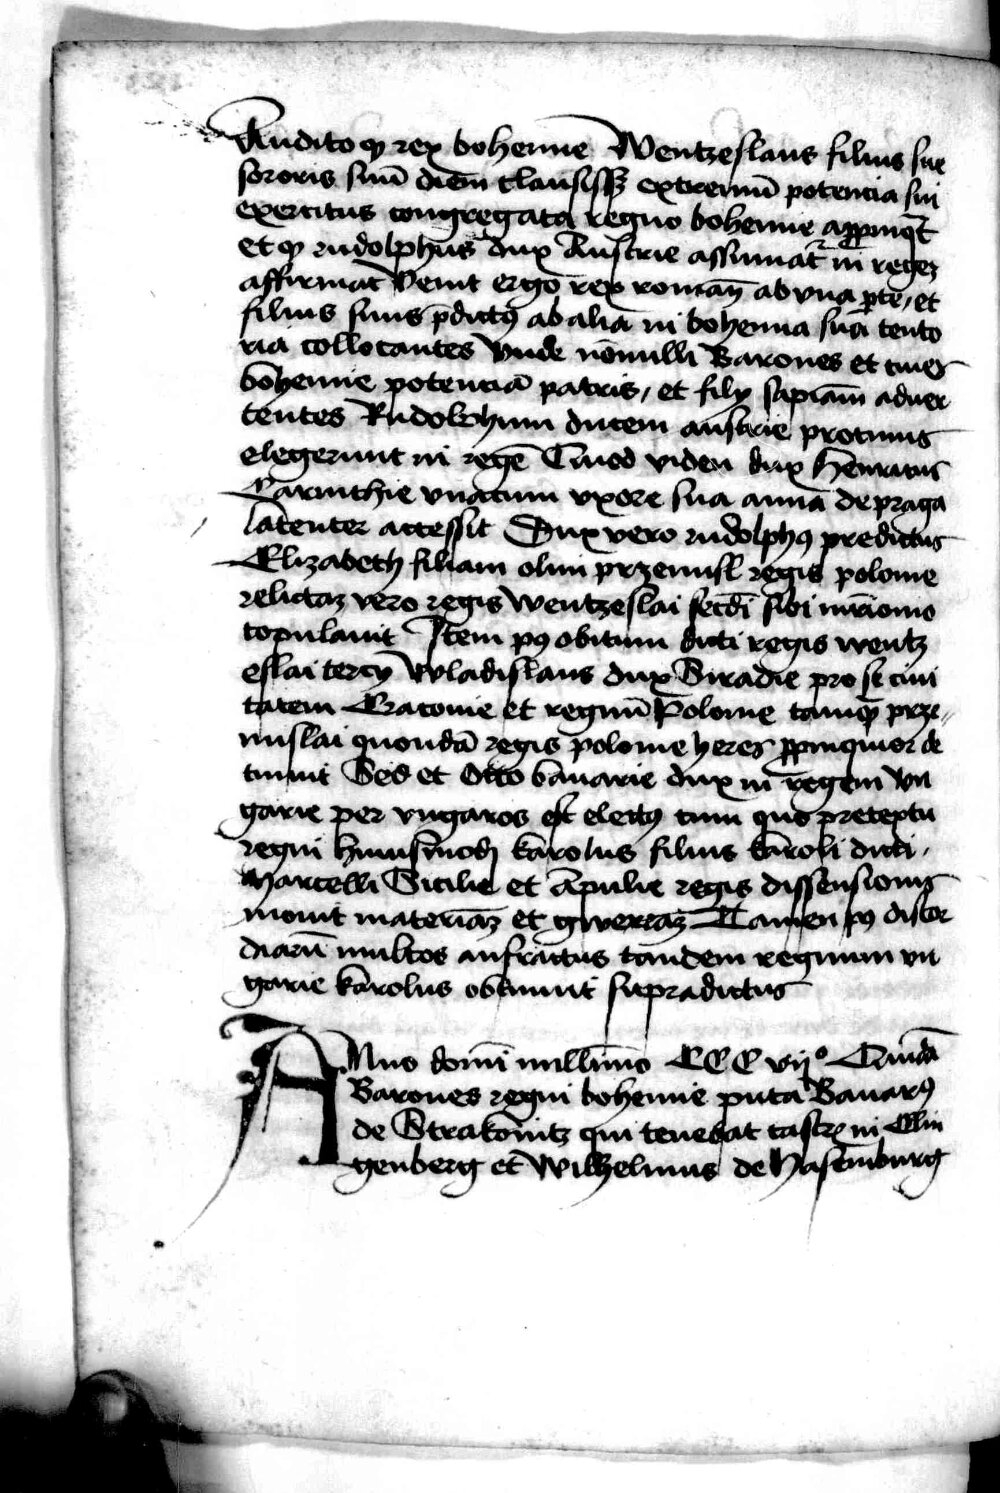 Audito qͦ rex bohemie Wentzeslaus filius sue
sororis suū diem clausissꝫ extremū potencia sui
exercitus congregata regno bohemie appīnqͣt
et qͦ rudolphus dux Austrie assumatͬ in regeꝫ
affirmat Venit ergo rex romaṇ ab vna ꝑte / et
filius suus p̄dictꝰ ab alia in bohemia sua tento
ria collocantes Vnde nōnulli Barones et ciues
bohemie potenciā patris / et filij sapīam aduer
tentes Rudolphum ducem austrie protinus
elegerunt in regē Quod viden dux Henricus
Carinthie vnacum vxore sua anna de praga
latenter accessit Dux vero rudolphꝰ predictus
Elizabeth filiam olim przemisl regis polonie
relictaꝫ vero regis Wentzeslai secdī sibi mr̄ionio
copulauit Item pꝰ obitum dicti regis wentz
eslai tercij Wladislaus dux Siradie pro se ciui
tatem Cracouie et regnū Polonie tamqͣ prze〃
mislai quondā regis polonie heres ꝓpinquior de
tinuit Sed et Otto bauarie dux in regem vn
garie per vngaros est electꝰ cum quo pretextu
regni huiusmodj karolus filius karoli dicti /
Marcelli Sicilie et Apulie regis dissensionis
mouit materiaꝫ et gwerraꝫ Tamen pꝰ discor
diarū multos anfractus tandem regnum vn
garie karolus obtinuit supradictus
ANno domī millīmo CCC vijº Quidā
Barones regni bohemie puta Bauarꝰ
de Strakonitz qui tenebat castrꝫ in Clin
genberg et Wilhelmus de Hasēmburg